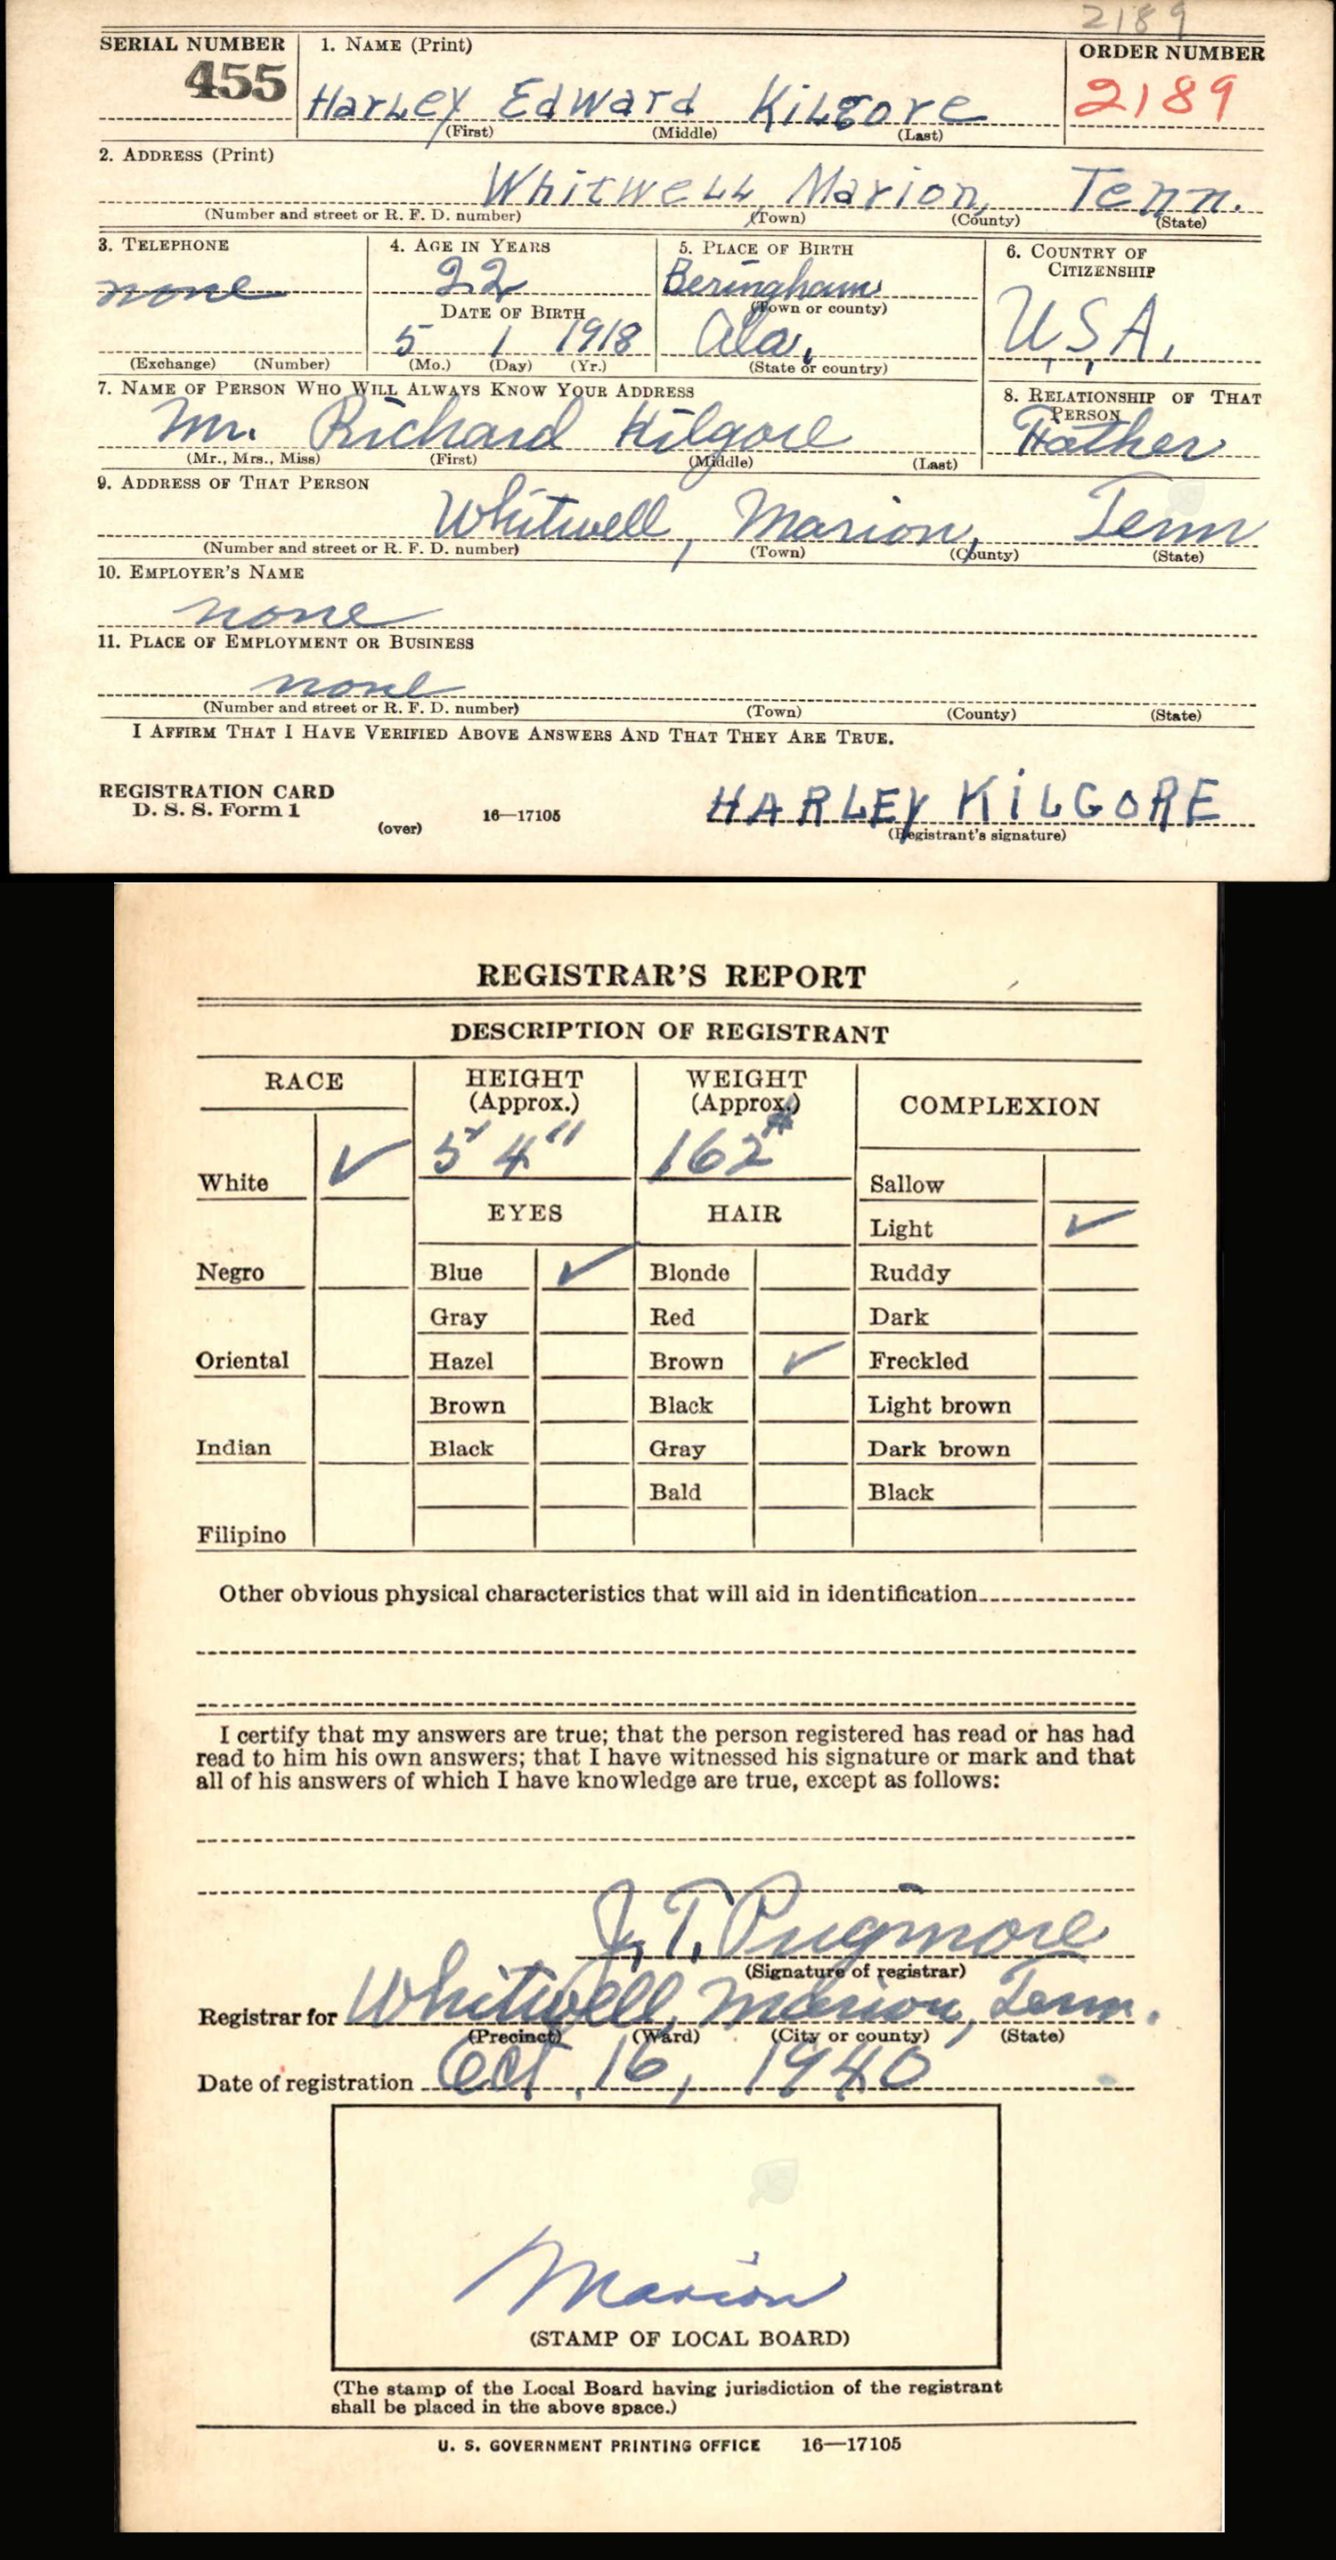 2189
SERIAL NUMBER 1. NAME (Print) ORDER NUMBER
455 Harley Edward Kilgore 2189
(First) (Middle) (Last)
2. ADDRESS (Print)
Whitwell, Marion, Tenn.
(Number and street or R. F. D. number) (Town) (County) (State)
3. TELEPHONE 4. AGE IN YEARS 5. PLACE OF BIRTH 6. COUNTRY OF CITIZENSHIP
none 22 Beringham
DATE OF BIRTH (Town or county)
5 1 1918 Ala. U.S.A.
(Exchange) (Number) (Mo.) (Day) (Yr.) (State or country)
7. NAME OF PERSON WHO WILL ALWAYS KNOW YOUR ADDRESS 8. RELATIONSHIP OF THAT PERSON
Mr. Richard Kilgore Father
(Mr., Mrs., Miss) (First) (Middle) (Last)
9. ADDRESS OF THAT PERSON
Whitwell, Marion, Tenn
(Number and street or R. F. D. number) (Town) (County) (State)
10. EMPLOYER'S NAME
none
11. PLACE OF EMPLOYMENT OR BUSINESS
none
(Number and street or R. F. D. number) (Town) (County) (State)
I AFFIRM THAT I HAVE VERIFIED ABOVE ANSWERS AND THAT THEY ARE TRUE.
REGISTRATION CARD
D. S. S. Form 1 16—17105 HARLEY KILGORE
(over) (Registrant's signature)
REGISTRAR'S REPORT
DESCRIPTION OF REGISTRANT
RACE HEIGHT (Approx.) WEIGHT (Approx.) COMPLEXION
5' 4" 162#
White ✓ Sallow
EYES HAIR Light ✓
Negro Blue ✓ Blonde Ruddy
Gray Red Dark
Oriental Hazel Brown ✓ Freckled
Brown Black Light brown
Indian Black Gray Dark brown
Bald Black
Filipino
Other obvious physical characteristics that will aid in identification
I certify that my answers are true; that the person registered has read or has had
read to him his own answers; that I have witnessed his signature or mark and that
all of his answers of which I have knowledge are true, except as follows:
J. T. Pugmore
(Signature of registrar)
Registrar for Whitwell, Marion, Tenn.
(Precinct) (Ward) (City or county) (State)
Date of registration Oct. 16, 1940
Marion
(STAMP OF LOCAL BOARD)
(The stamp of the Local Board having jurisdiction of the registrant
shall be placed in the above space.)
U. S. GOVERNMENT PRINTING OFFICE 16—17105